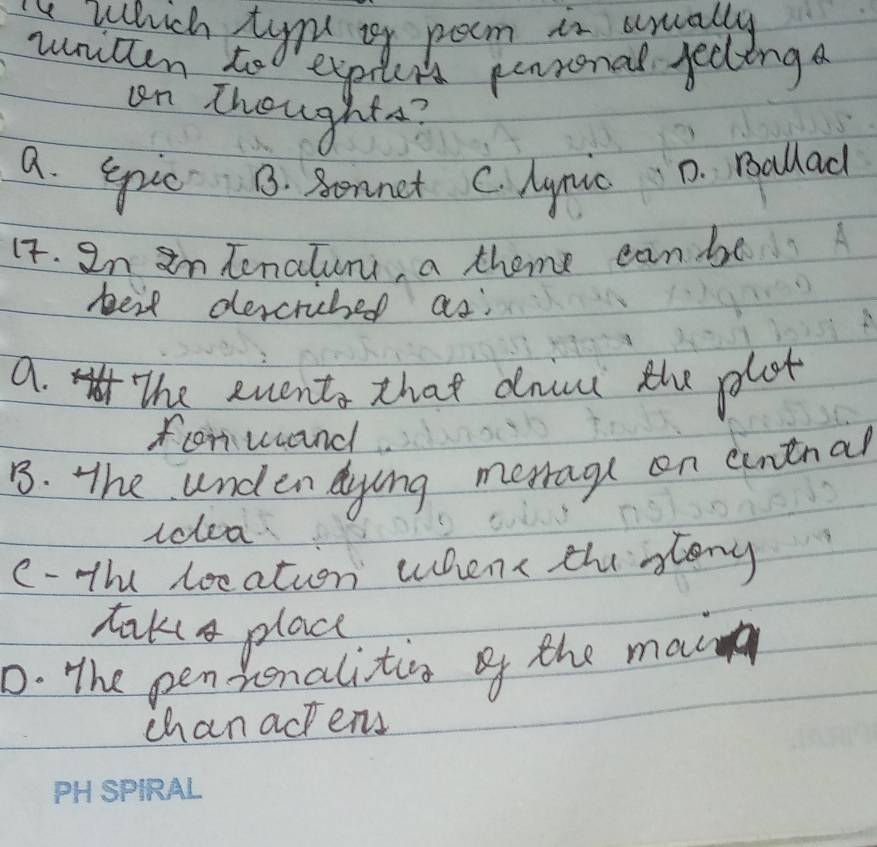 16 Which type of poem is usually
written to express personal feelings
or thoughts?
a. Epic B. Sonnet C. Lyric D. Ballad
17. In In Literature, a theme can be
best described as:
a. The events that drive the plot
forward
B. The underlying message or central
idea
C - The location where the story
takes place
D. The personalities of the main
characters
PH SPIRAL